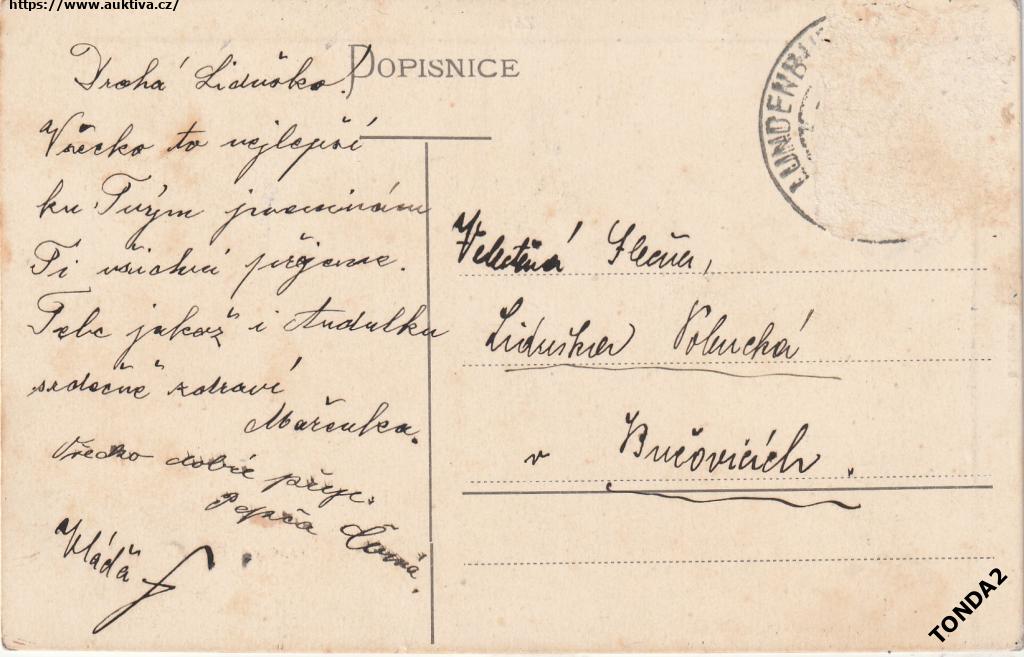 https://www.auktiva.cz/
DOPISNICE
LUNDENBU
Drahá Liduško!
Všecko to nejlepší
ku Tvým jmeninám
Ti všichni přejeme.
Tebe jakož i Andulku
srdečně zdraví
Mařenka.
Všecko dobré přeje.
Pepča
Vláďa
Velectěná Slečna,
Liduška
v Bučovicích.
TONDA2